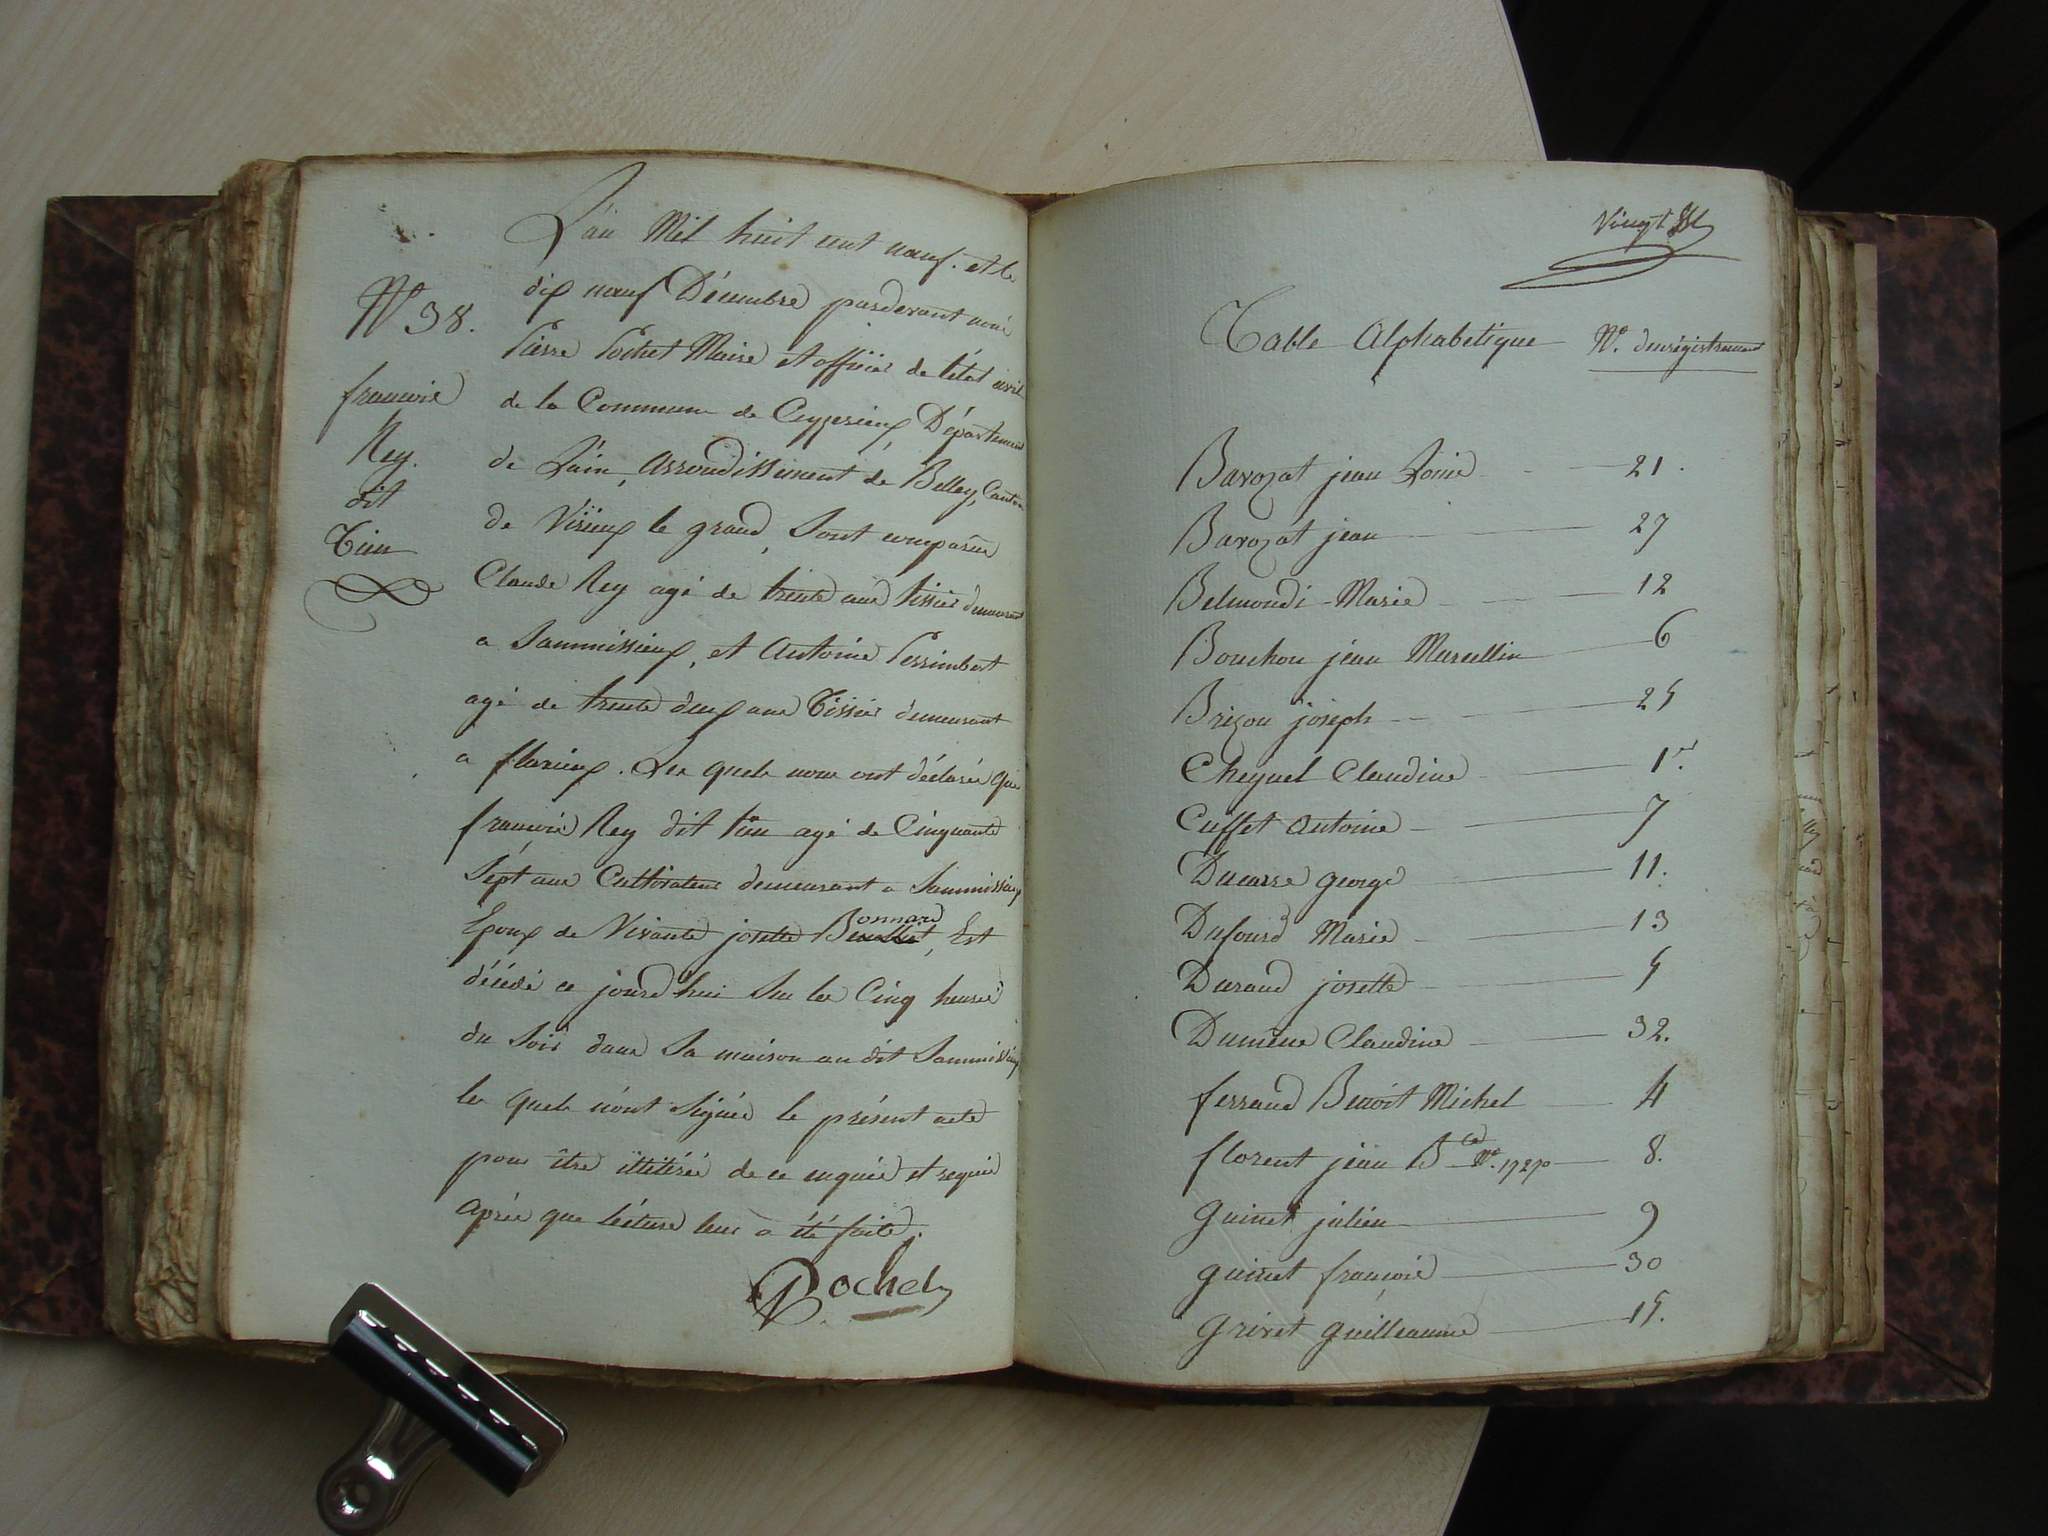 N° 38.
françois
Rey.
dit
Tian
L'an Mil huit cent neuf. et le
dix neuf Décembre pardevant nous
Pierre Pochet Maire et officier de l'état civil
de la Commune de Ceyzerieux, Département
de L'ain, arrondissement de Belley, Canton
de Virieux le grand, Sont comparus
Claude Rey agé de trente ans tissier demeurant
a Sammissieux, et Antoine Perrimbert
agé de trente deux ans Tissier demeurant
a flavieux. Les quels nous ont déclarés que
françois Rey dit tian agé de Cinquante
Sept ans Cultivateur demeurant a Sammissieux
Epoux de Vivante josette Bonnard, Est
décédé ce jourd'hui Sur les Cinq heures
du Soir dans Sa maison au dit Sammissieux
les quels n'ont Signés le présent acte
pour être illitérés de ce enquis et requis
après que lécture leur a été faite.
Pochet
Vingt
Table Alphabetique N°. d'enrégistrement
Bavozat jean Louis 21.
Bavozat jean 27
Belmondi Marie 12
Bouchon jean Marcellin 6
Brizon joseph 25
Cheynel Claudine 1er.
Cuffet Antoine 7
Ducarre george 11.
Dufourd Marie 13
Durand josette 5
Dumène Claudine 32.
ferrand Benoit Michel 4
florent jean B 8.
guinet julien 9
guinet françois 30
grivet guilleaume 15.